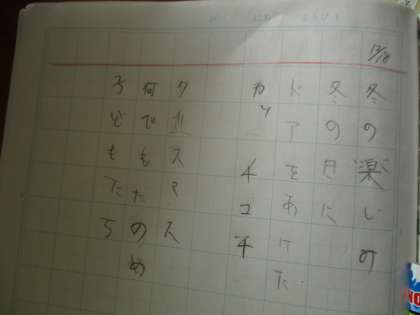 12/18
冬の楽しみ
冬の日に
ドアをあけた
カッチコチ
クリスマス
何でもたのめ
子どもたち